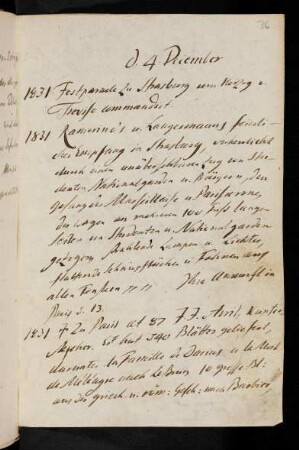 36
d. 4 December
1831 Festparade zu Strasburg vom Herzog v.
Treviso commandirt.
1831 Ramorino's u. Langermanns
Empfang in Strasburg verherrlicht
durch einen unübersehbaren Zug von Stu-
denten Nationalgarden u. Bürgern, den
Gesang der Marseillaise u. Parisienne,
den Wagen an mehrere 100 Fuß langen
Seilen von Studenten u. Nationalgarden
gezogen, Lampen u. Lichter,
Schnupftücher u. Fahnen aus
allen Fenstern Ihre Ankunft in
Paris d. 13.
1831 † Zu Paris aet 87 J. J. Avril, Kupfer-
stecher. Er hat 540 Blätter geliefert,
darunter la Famille de Darius u. la Mort
de Méléagre nach le Brun 10 große Bl:
aus der griech. u. röm: Gesch: nach Barbier,